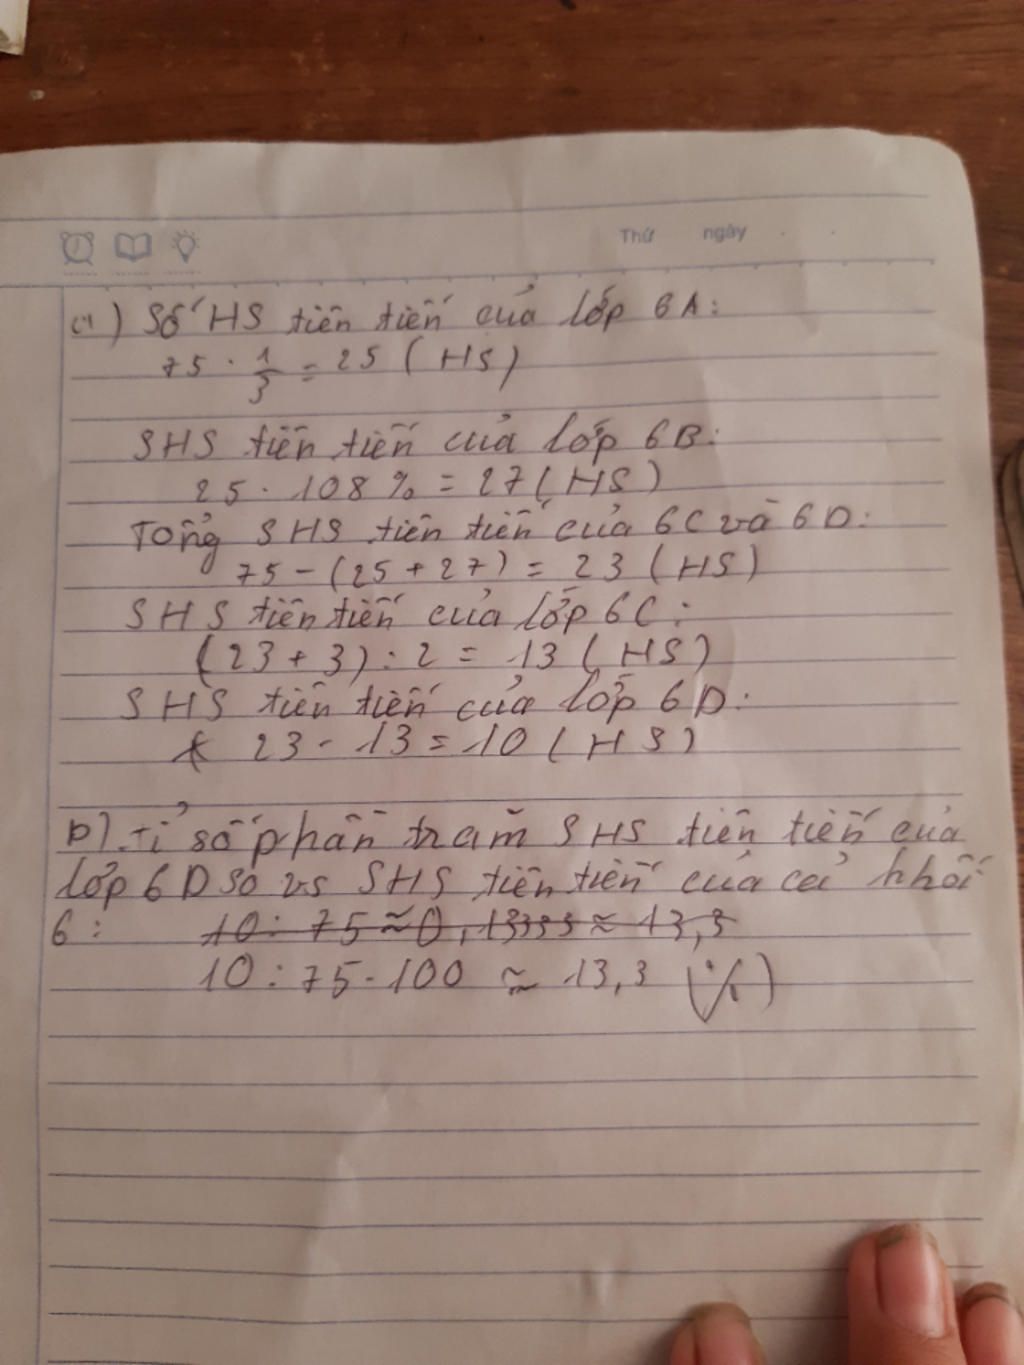 Thứ ngày
a) Số HS tiên tiến của lớp 6A:
75 · 1/3 = 25 (HS)
SHS tiên tiến của lớp 6B:
25 · 108% = 27 (HS)
Tổng SHS tiên tiến của 6C và 6D:
75 - (25 + 27) = 23 (HS)
SHS tiên tiến của lớp 6C:
(23 + 3) : 2 = 13 (HS)
SHS tiên tiến của lớp 6D:
23 - 13 = 10 (HS)
b) Tỉ số phần trăm SHS tiên tiến của
lớp 6D so vs SHS tiên tiến của cả khối
6: 10 : 75 ≈ 0,13333 ≈ 13,3
10 : 75 · 100 ≈ 13,3 (%)